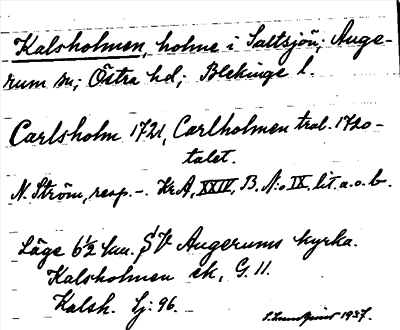 Kalsholmen, holme i Saltsjön; Auge-
rum sn; Östra hd; Blekinge l.
Carlsholm 1721, Carlholmen tral. 1720-
talet.
N. Ström, resp. -. Kr.A, XXIV, B. N:o IX, lit. a. o. b.
Läge 6½ km. SV Augerums kyrka.
Kalsholmen ek, G. 11.
Kalsh. Lj: 96.
S. Lundqvist 1937.